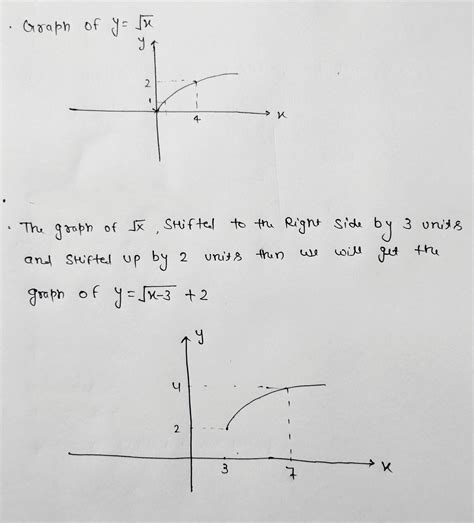 · Graph of y = √x
y
2
1
4
x
· The graph of √x, Shifted to the Right side by 3 units
and Shifted up by 2 units then we will get the
graph of y = √x-3 + 2
y
4
2
3
7
x